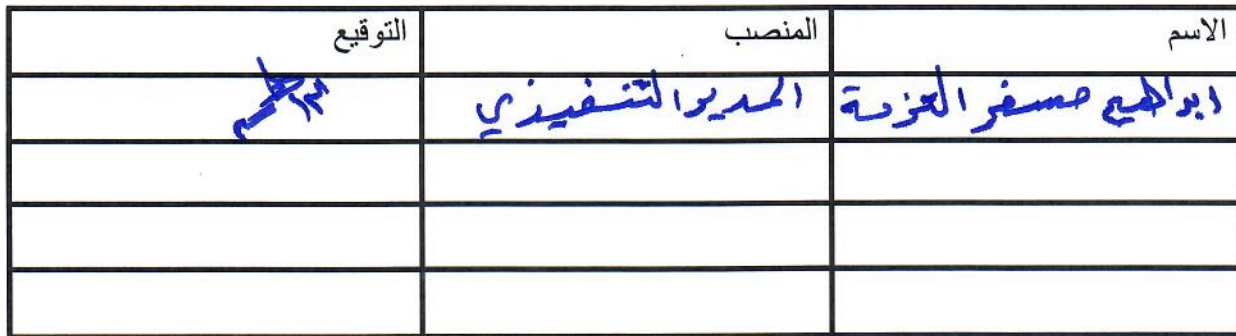 الاسم المنصب التوقيع
ابراهيم مسفر العزمة المدير التنفيذي